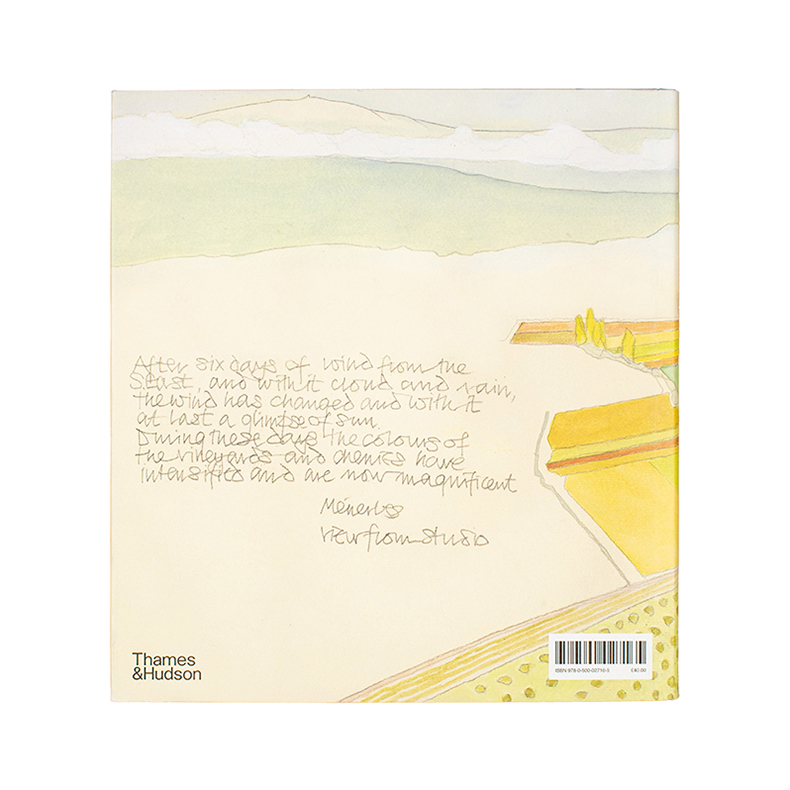 After six days of wind from the
S.East, and with it cloud and rain,
the wind has changed and with it
at last a glimpse of sun.
During these days the colours of
the vineyards and cherries have
intensified and are now magnificent
Ménerbes
View from studio
Thames
&Hudson
ISBN 978-0-500-02716-5
£40.00